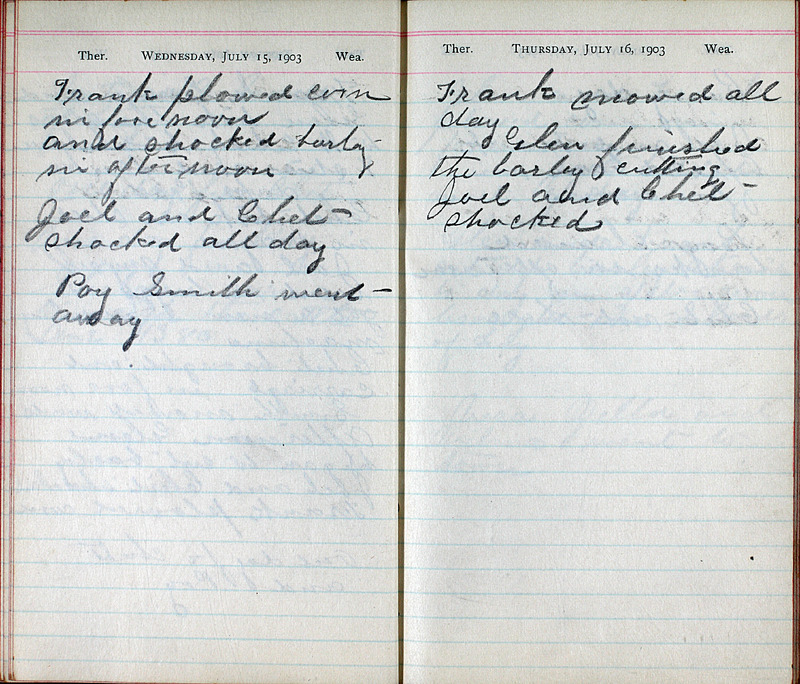 Ther. WEDNESDAY, JULY 15, 1903 Wea.
Frank plowed corn
in fore noon
and shocked barley
in after noon
Joel and Chet
shocked all day
Roy Smith went
away
Ther. THURSDAY, JULY 16, 1903 Wea.
Frank mowed all
day
Glen finished
the barley cutting
Joel and Chet
shocked